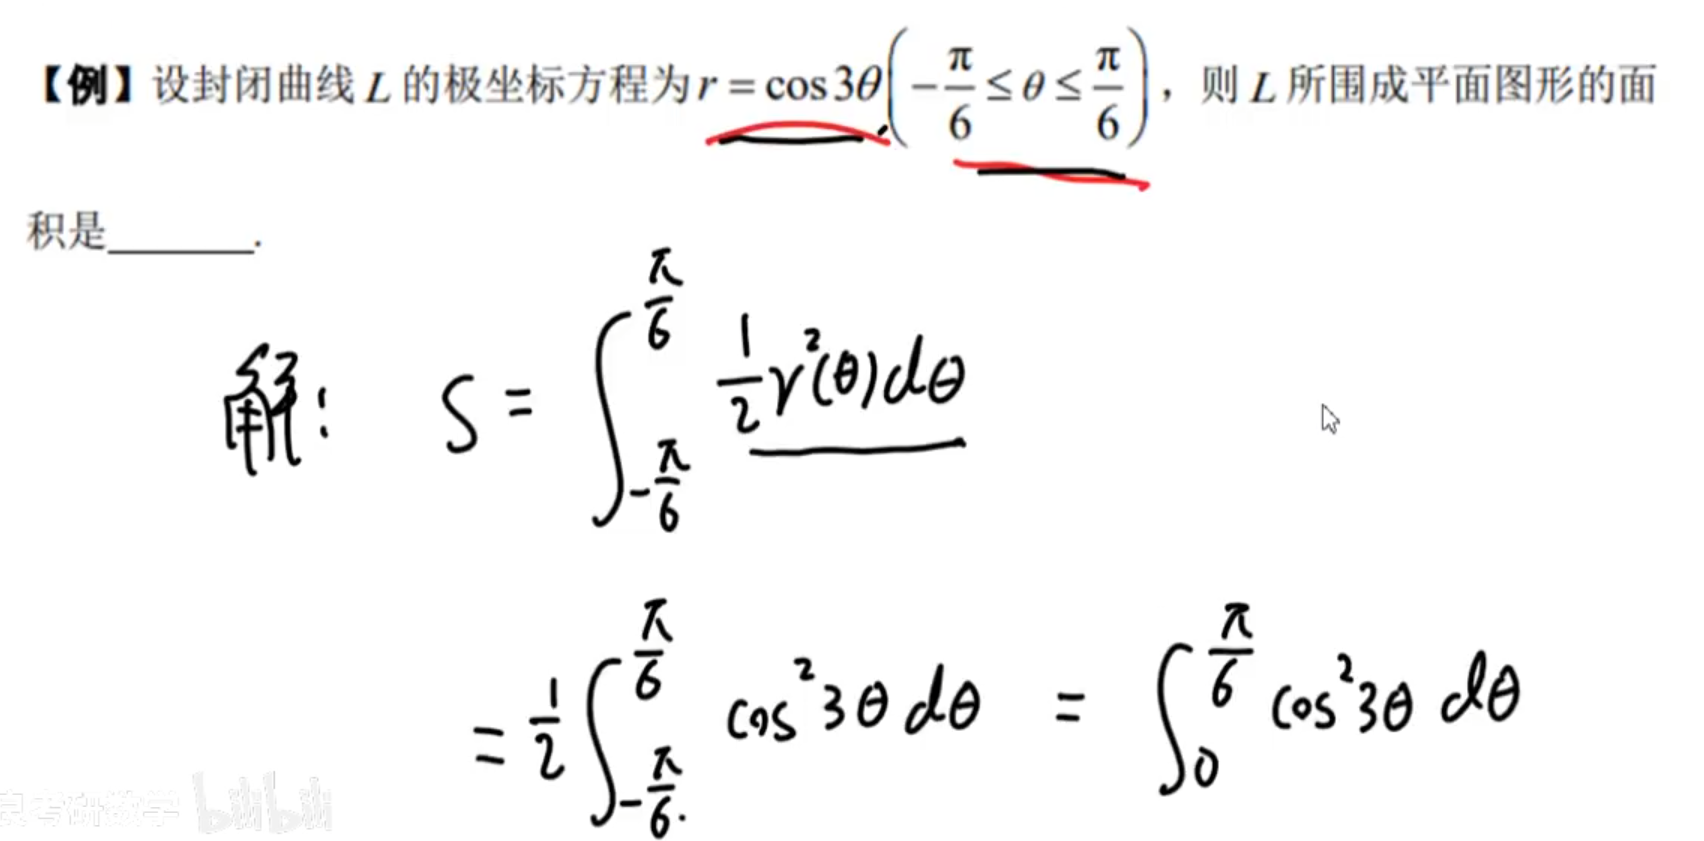 【例】设封闭曲线 L 的极坐标方程为 r = cos 3θ ( -π/6 ≤ θ ≤ π/6 ), 则 L 所围成平面图形的面
积是______.
解: S = ∫_{-π/6}^{π/6} 1/2 r²(θ) dθ
= 1/2 ∫_{-π/6}^{π/6} cos² 3θ dθ = ∫_0^{π/6} cos² 3θ dθ
考研数学 bilibili